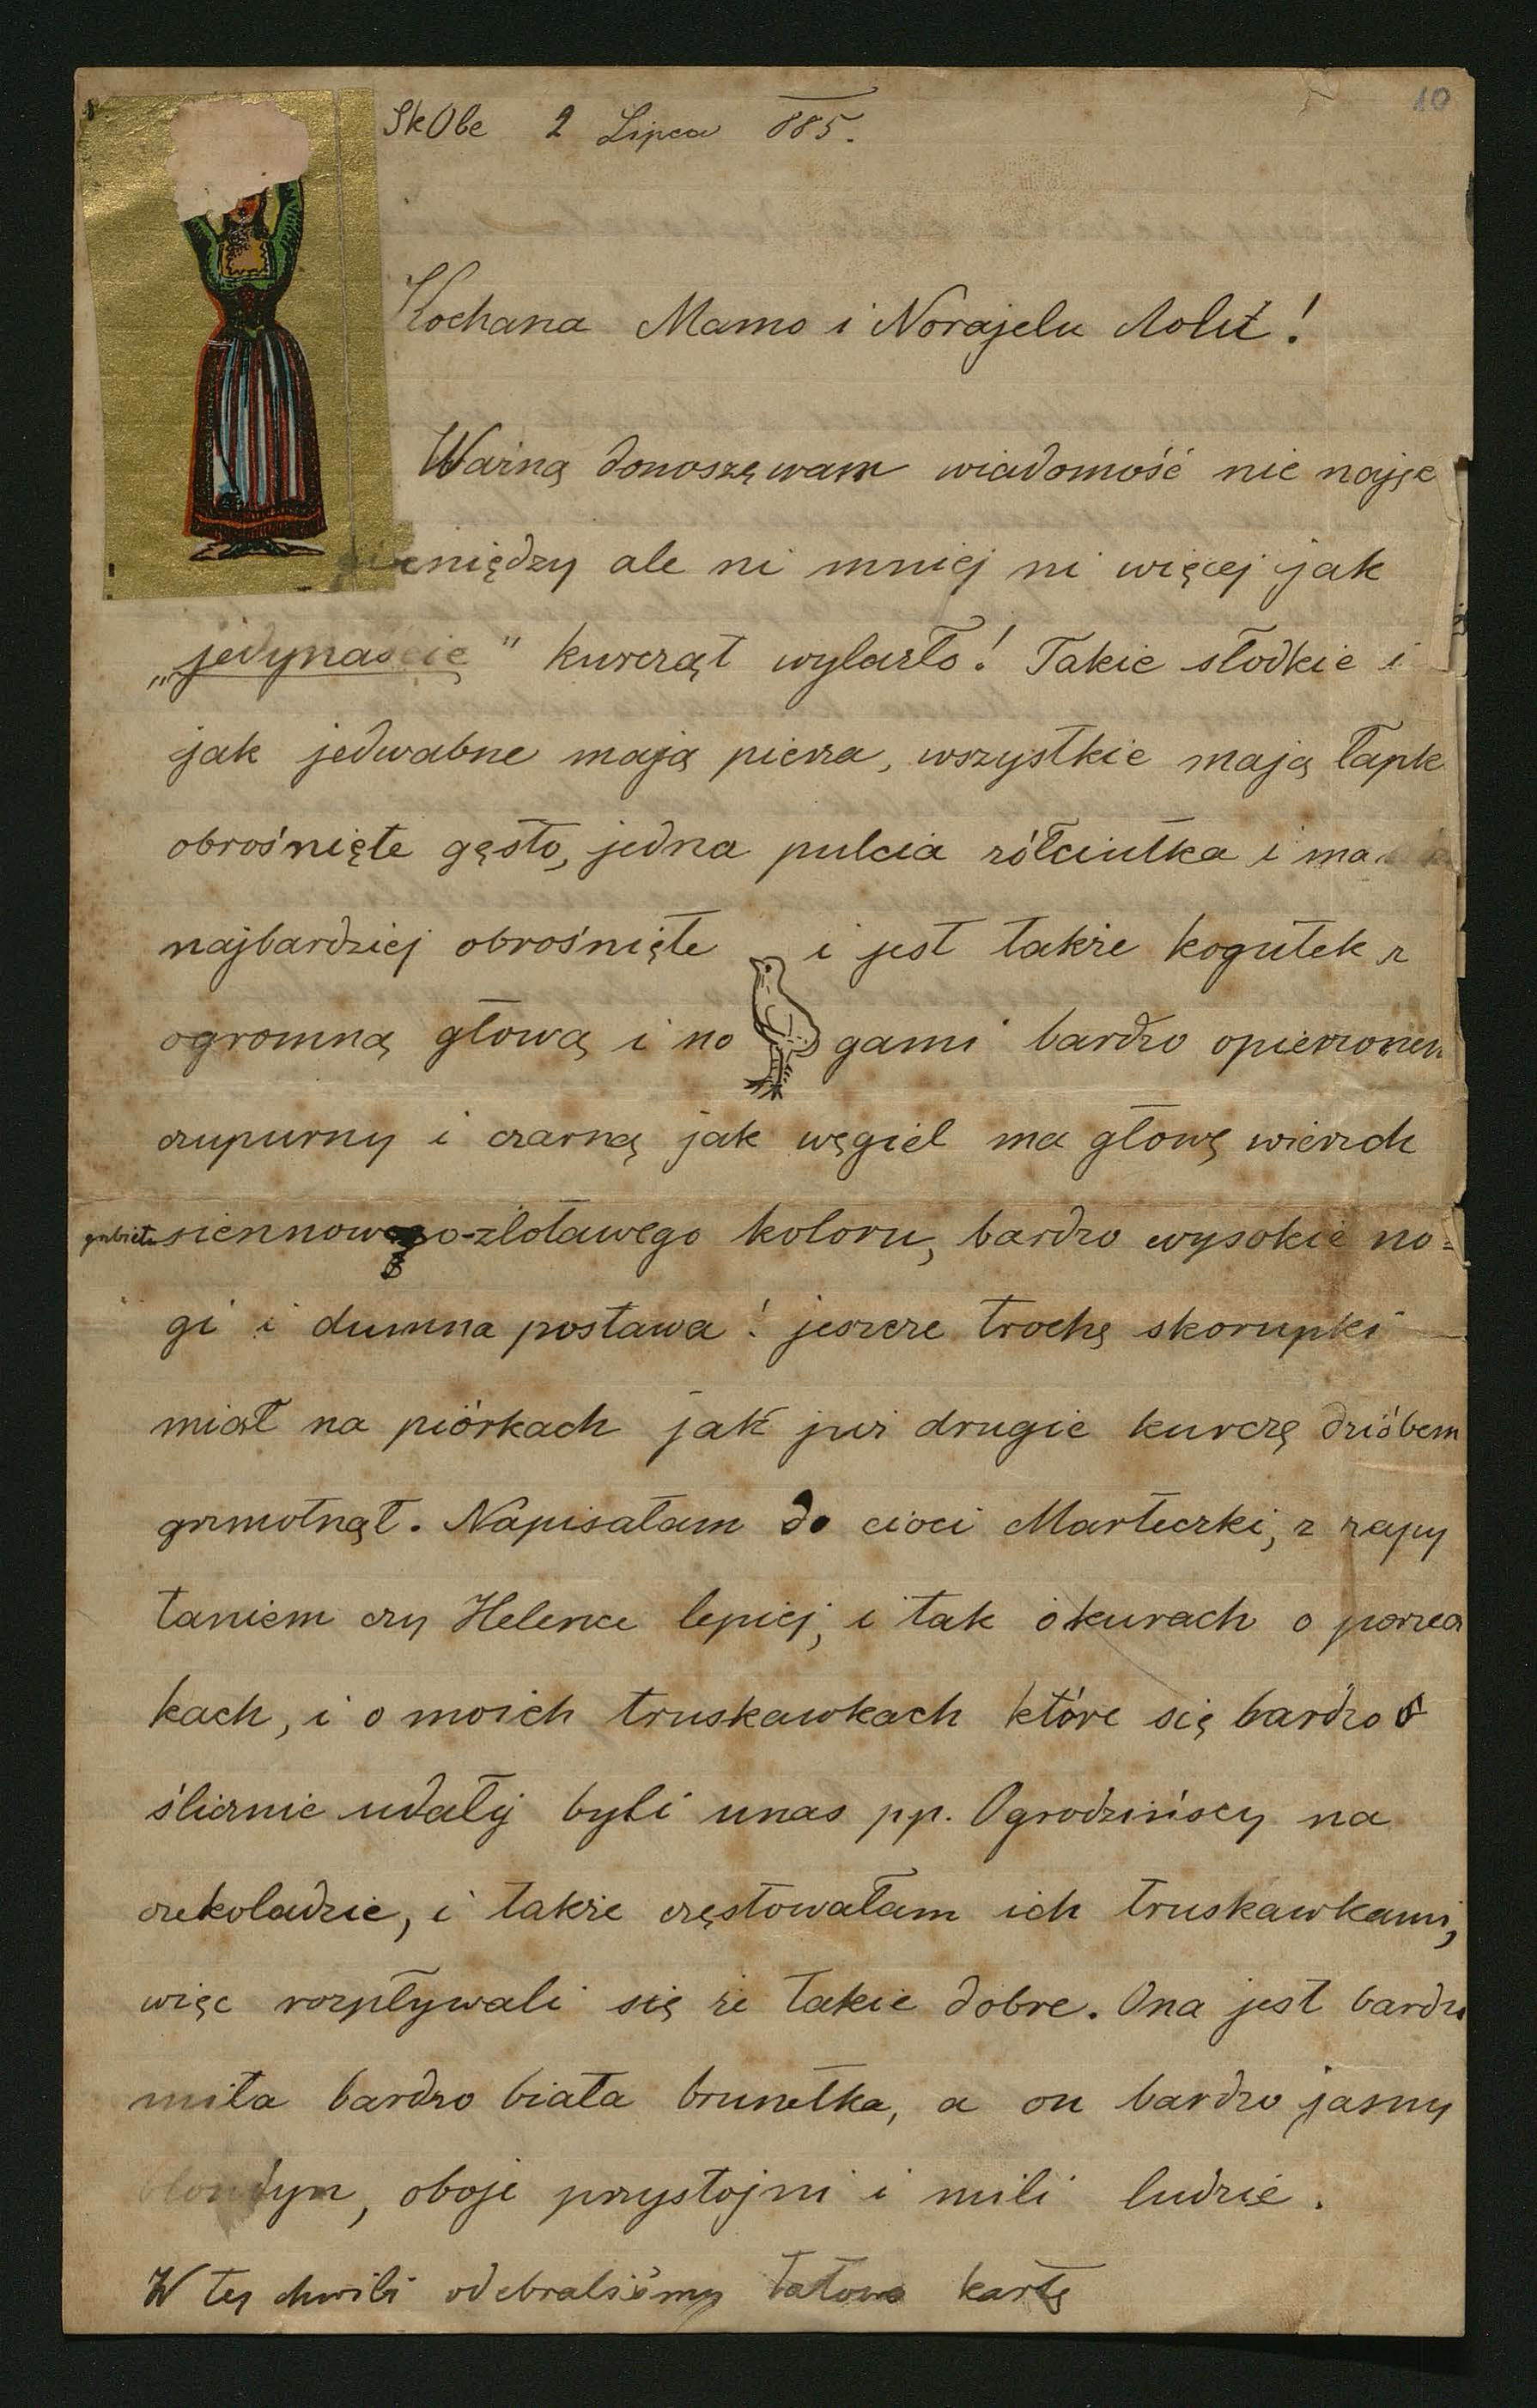 10
SkObe 2 Lipca 885.
Kochana Mamo i Norajelu Lolu!
Warną donoszę wam wiadomość nie naję
pieniędzy ale ni mniej ni więcej jak
„jedynaście" kurcząt wylazło! Takie słodkie i
jak jedwabne mają pierza, wszystkie mają łapk
obrośnięte gęsto, jedna pulcia żółciutka i ma
najbardziej obrośnięte i jest także kogutek z
ogromną głową i nogami bardzo opierzonem
czupurny i czarną jak węgiel ma głowę wierzch
siennowego-złotawego koloru, bardzo wysokie no=
gi i dumna postawa! jeszcze trochę skorupki
miał na piórkach jak już drugie kurczę dzióbem
grzmotnął. Napisałam do cioci Marteczki, z zapy
taniem czy Helence lepiej, i tak o kurach o porzecz
kach, i o moich truskawkach które się bardzo
ślicznie udały byli unas pp. Ogrodzińscy na
czekoladzie, i także częstowałam ich truskawkami,
więc rozpływali się że takie dobre. Ona jest bardzo
miła bardzo biała brunetka, a on bardzo jasny
blondyn, oboje przystojni i mili ludzie.
W tej chwili odebraliśmy tatowa kartę